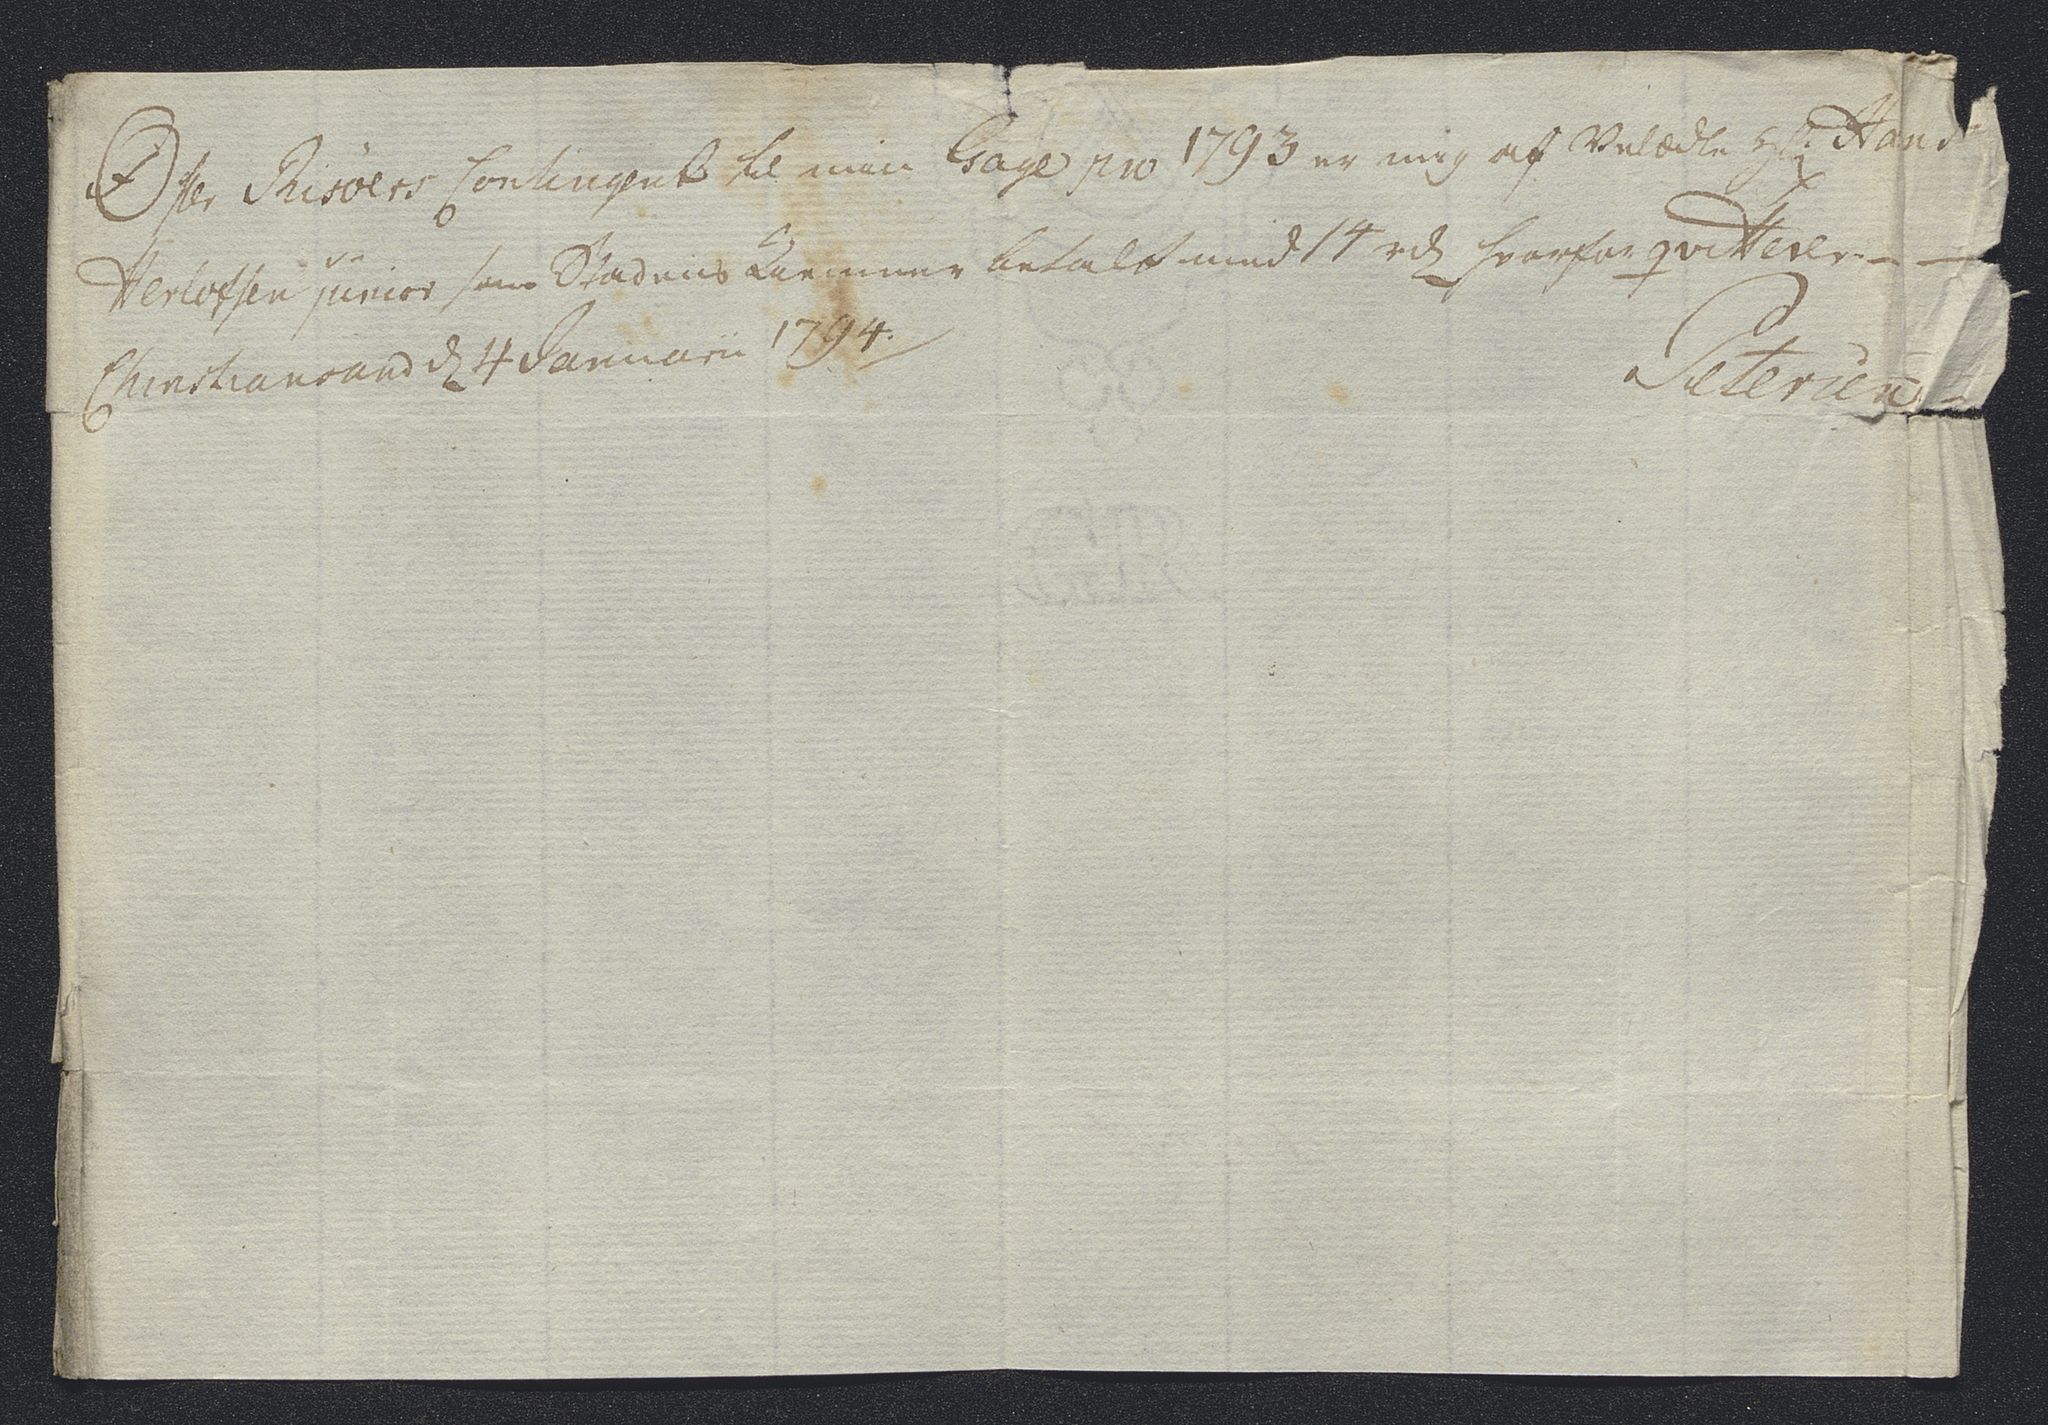 Øster Risöers Contingent til min Gage pro 1793 er mig af Velædle Hr Hans
Herlofsen junior som Stadens Kæmner betalt med 14 rd hvorfor qvitterer
Christiansand d 4 Januarii 1794.
Petersen